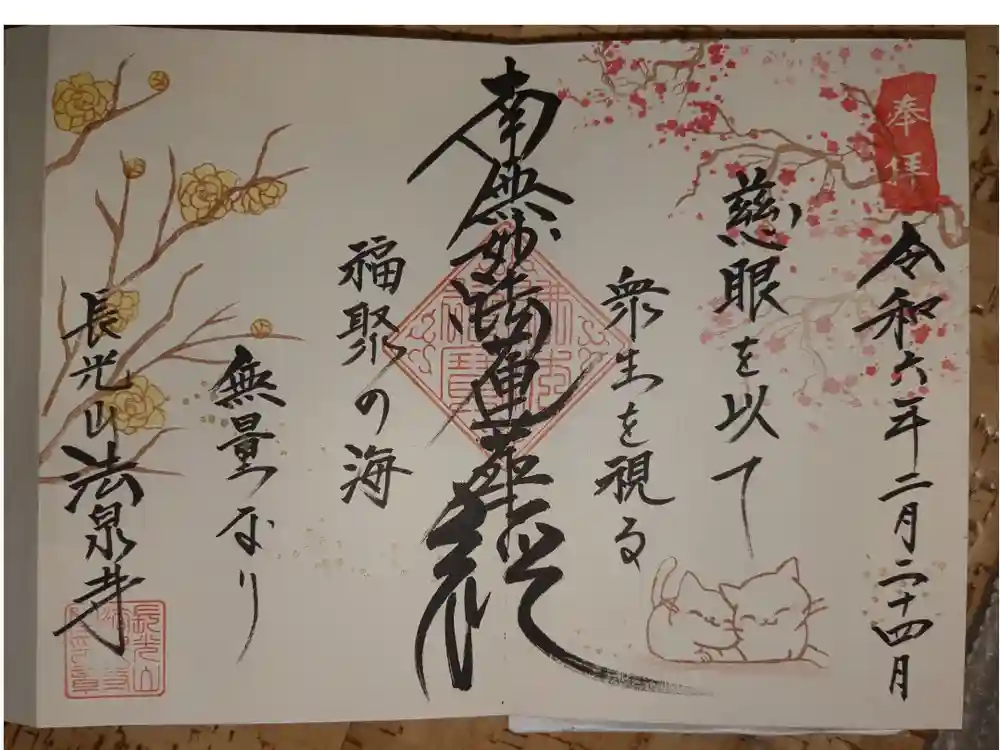 奉拝
令和六年二月二十四月
慈眼を以て
衆生を視る
南無妙法蓮華経
福聚の海
無量なり
長光山法泉寺
長光山